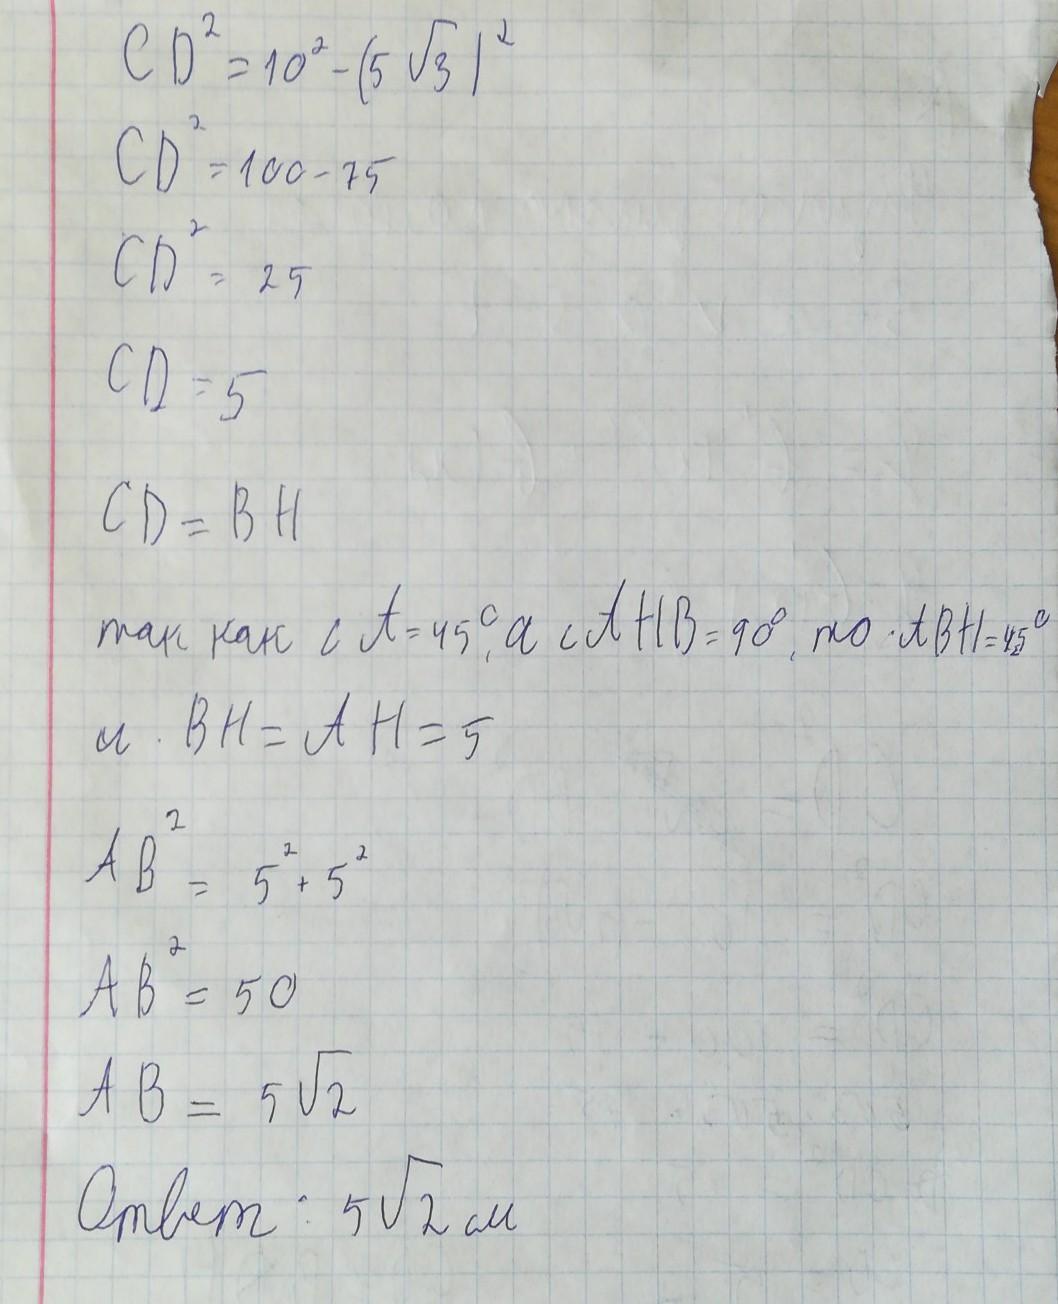 CD² = 10² - (5√3)²
CD² = 100 - 75
CD² = 25
CD = 5
CD = BH
так как ∠A = 45°, а ∠AHB = 90°, то ABH = 45°
и BH = AH = 5
AB² = 5² + 5²
AB² = 50
AB = 5√2
Ответ: 5√2 см